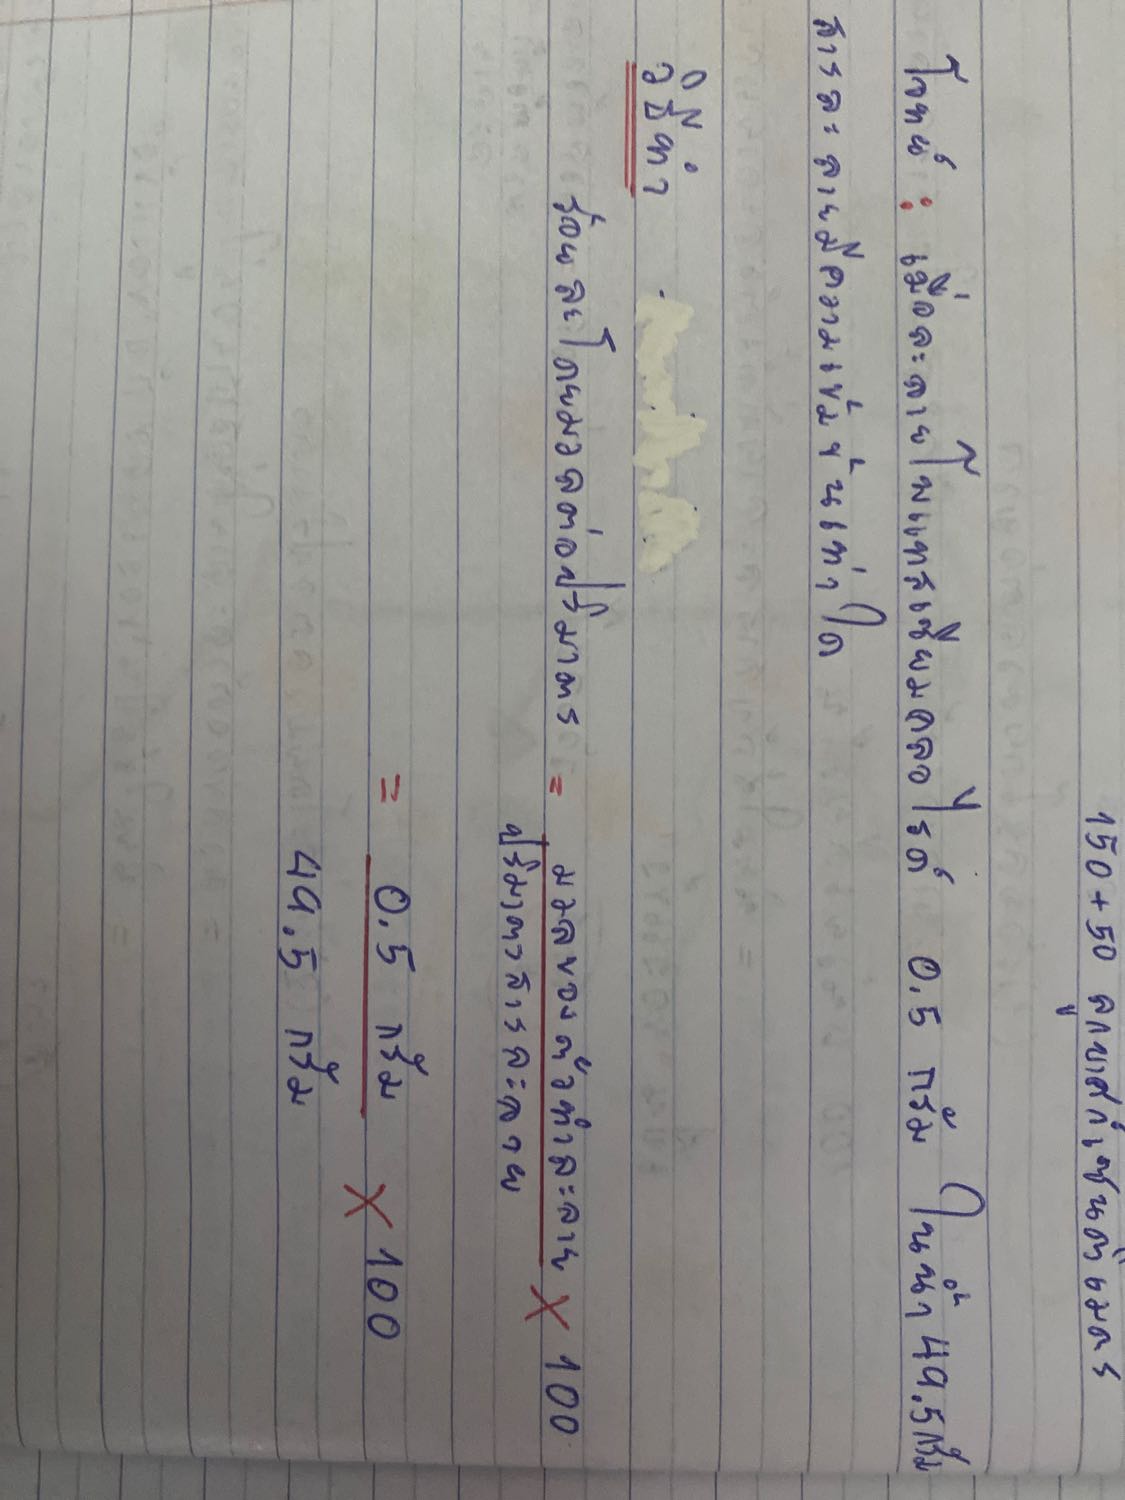 150 + 50 ลูกบาศก์เซนติเมตร
โจทย์ : เมื่อละลายโพแทสเซียมคลอไรด์ 0.5 กรัม ในน้ำ 49.5 กรัม
สารละลายมีความเข้มข้นเท่าใด
วิธีทำ
ร้อยละโดยมวลต่อปริมาตร = มวลของตัวทำละลาย X 100
ปริมาตรสารละลาย
= 0.5 กรัม X 100
49.5 กรัม